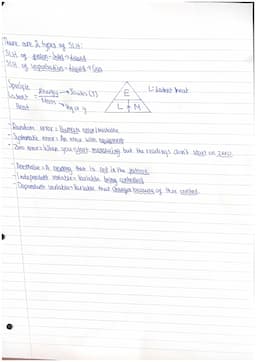 There are 2 types of SLH:
SLH of fusion - Solid → liquid
SLH of vaporisation - liquid → Gas
Specific Latent Heat = Energy → Joules (J) / Mass → kg or g
E
L M
L: Latent heat
- Random error = Human error/mistake
- Systematic error = An error with equipment
- Zero error = When you start measuring but the readings don't start on zero.
- Anomalies = A reading that is not in the pattern
- Independent variable = Variable being controlled
- Dependent variable = Variable that changes because of the control.